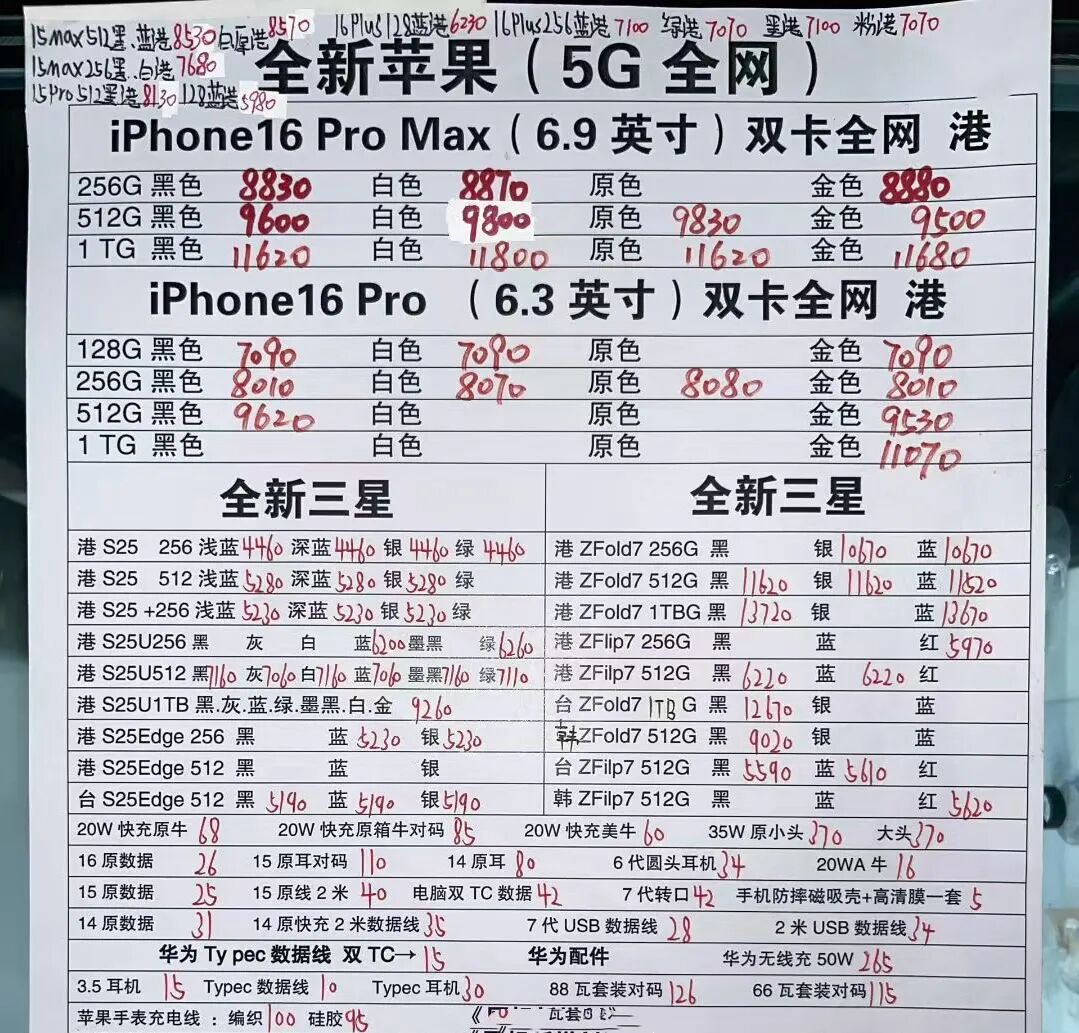 15max512黑.蓝港8530白原港8570 16Plus128蓝港6230 16Plus256蓝港7100 绿港7070 黑港7100 粉港7070
15max256黑.白港7680
15Pro512黑港8130 128蓝港5980
全新苹果（5G 全网）
iPhone16 Pro Max（6.9 英寸）双卡全网 港
256G 黑色 8830 白色 8870 原色 金色 8880
512G 黑色 9600 白色 9800 原色 9830 金色 9500
1 TG 黑色 11620 白色 11800 原色 11620 金色 11680
iPhone16 Pro （6.3 英寸）双卡全网 港
128G 黑色 7090 白色 7090 原色 金色 7090
256G 黑色 8010 白色 8070 原色 8080 金色 8010
512G 黑色 9620 白色 原色 金色 9530
1 TG 黑色 白色 原色 金色 11070
全新三星 全新三星
港 S25 256 浅蓝4460 深蓝4460 银4460 绿 4460
港 S25 512 浅蓝5280 深蓝5280 银5280 绿
港 S25 +256 浅蓝5230 深蓝5230 银5230 绿
港 S25U256 黑 灰 白 蓝6200墨黑 绿6260
港 S25U512 黑7160 灰7060 白7160 蓝7060 墨黑7160 绿7110
港 S25U1TB 黑.灰.蓝.绿.墨黑.白.金 9260
港 S25Edge 256 黑 蓝 5230 银5230
港 S25Edge 512 黑 蓝 银
台 S25Edge 512 黑 5190 蓝 5190 银5190
港 ZFold7 256G 黑 银10670 蓝10670
港 ZFold7 512G 黑 11620 银 11620 蓝11520
港 ZFold7 1TBG 黑 13720 银 蓝13670
港 ZFlip7 256G 黑 蓝 红 5970
港 ZFilp7 512G 黑 6220 蓝 6220 红
台 ZFold7 1TB G 黑 12670 银 蓝
韩ZFold7 512G 黑 9020 银 蓝
台 ZFilp7 512G 黑 5590 蓝 5610 红
韩 ZFilp7 512G 黑 蓝 红 5620
20W 快充原牛 68 20W 快充原箱牛对码 85 20W 快充美牛 60 35W 原小头 370 大头370
16 原数据 26 15 原耳对码 110 14 原耳 80 6 代圆头耳机34 20WA 牛 16
15 原数据 25 15 原线 2 米 40 电脑双 TC 数据42 7 代转口42 手机防摔磁吸壳+高清膜一套 5
14 原数据 31 14 原快充 2 米数据线35 7 代 USB 数据线 28 2 米 USB 数据线34
华为 Ty pec 数据线 双 TC→15 华为配件 华为无线充 50W 265
3.5 耳机 15 Typec 数据线 10 Typec 耳机30 88 瓦套装对码 126 66 瓦套装对码115
苹果手表充电线 ：编织100 硅胶95